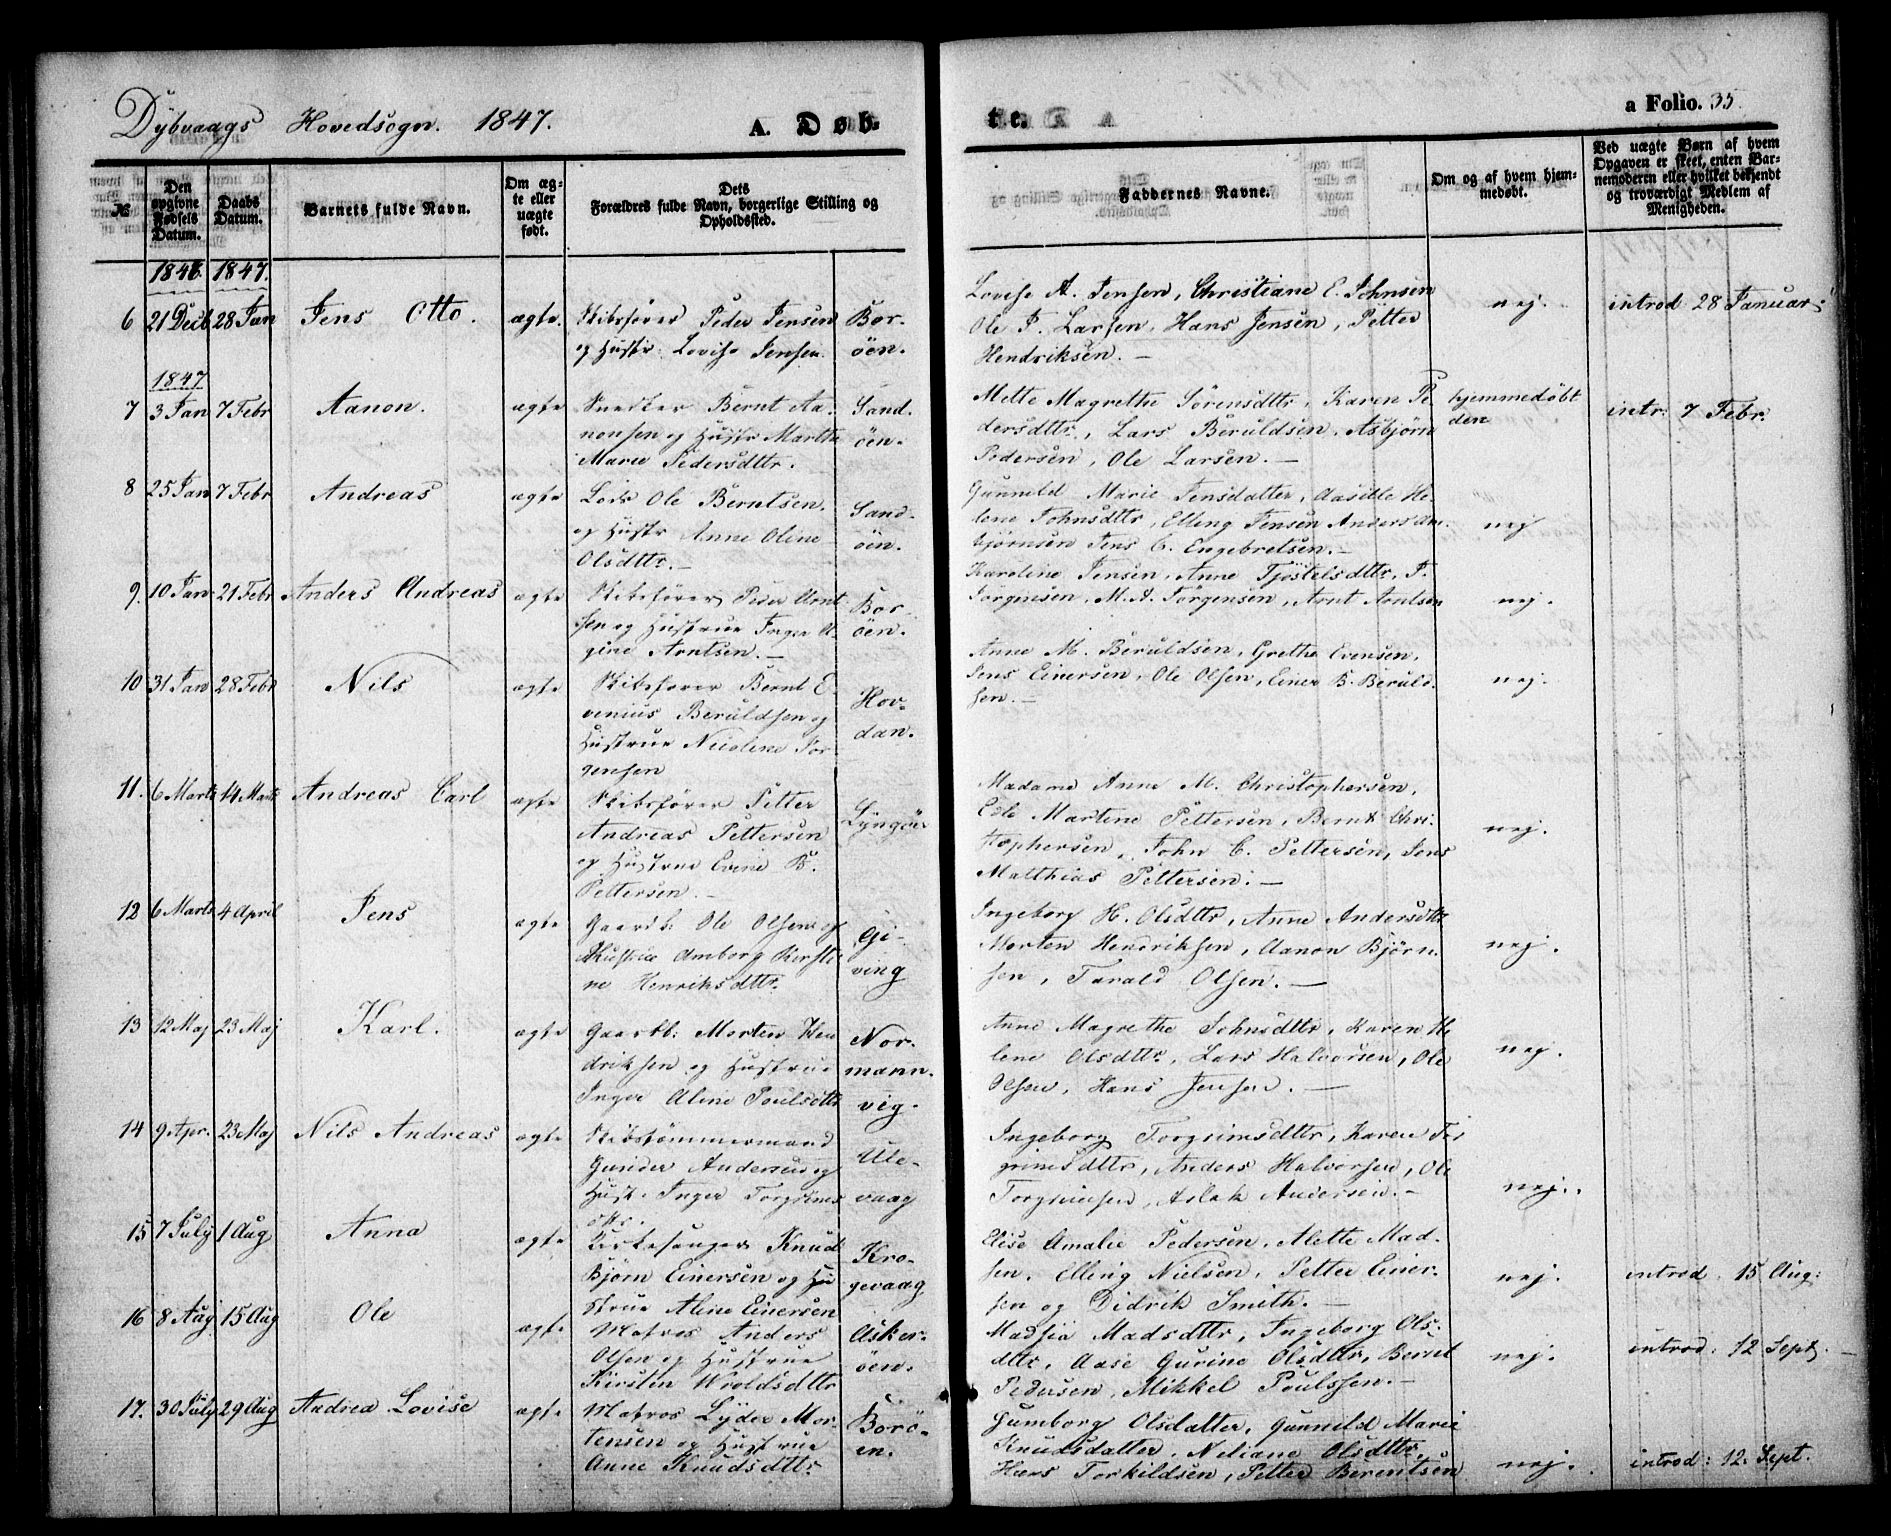 Dybvaags Hovedsogn. 1847.
A. Døb-
te.
a Folio. 35.
№
Den opgivne Fødsels Datum.
Daabs Datum.
Barnets fulde Navn.
Om ægte eller uægte født.
Dets
Forældres fulde Navn, borgerlige Stilling og
Opholdssted.
Faddernes Navne.
Om og af hvem hjem-
medøbt.
Ved uægte Børn af hvem
Opgaven er skeet, enten Bar-
nemoderen eller hvilket bekjendt
og troværdigt Medlem af
Menigheden.
1846. 1847.
6 21 Decb 28 Jan Jens Otto. ægte. Skibsfører Peder Jensen
og Hustr: Lovise Jensen.
Bor-
öen.
Lovise A. Jensen, Christiane E. Johnsen
Ole J. Larsen, Hans Jensen, Petter
Hendriksen. —
nej. introd 28 Januar:
1847
7 3 Jan 7 Febr Aanon. ægte Snedker Bernt Aa-
nonsen og Hustr Marthe
Marie Pedersdttr.
Sand-
öen.
Mette Magrethe Sörensdttr, Karen Pe
dersdttr, Lars Beruldsen, Asbjørn
Pedersen, Ole Larsen. —
hjemmedøbt
den
intr: 7 Febr.
8 25 Jan 7 Febr Andreas ægte Lods Ole Berntsen.
og Hustr Anne Oline
Olsdttr. —
Sand-
öen.
Gunnild Marie Jensdatter, Aasille He-
lene Johnsdttr, Elling Jensen Anders As-
bjørnsen Jens C. Engebretsen. —
nej
9. 10 Jan 21 Febr Anders Andreas ægte Skibsfører Peder Arnt
sen og Hustrue Inger
gine Arntsen. —
Bor-
öen.
Karoline Jensen, Anne Tjöstelsdttr, J.
Jørgensen, M. A. Jørgensen, Arnt Arntsen
nej.
10 31 Jan 28 Febr Nils ægte Skibsfører Bernt E-
venius Beruldsen og
Hustrue Nicoline Jør
gensen
Hov-
dan.
Anne M. Beruldsen, Grethe Evensen,
Jens Einersen, Ole Olsen, Einer B. Beruld-
sen. —
nej.
11. 6 Marts 14 Marts Andreas Carl ægte Skibsfører Petter
Andreas Pettersen
og Hustrue Evine B.
Pettersen. —
Lyngöe
Madame Anne M. Christophersen,
Edle Martine Pettersen, Bernt Chri-
stophersen, John C. Pettersen, Jens
Matthias Pettersen. —
nej.
12 6 Marts 4 April Jens ægte Gaardb: Ole Olsen og
Hustrue Amborg Kirsti-
ne Henriksdttr.
Gi-
ving
Ingeborg H. Olsdttr, Anne Andersdttr
Morten Hendriksen, Aanon Bjørn-
sen, Tarald Olsen. —
nej.
13 12 Maj 23 Maj Karl. ægte Gaardb: Morten Hen
driksen og Hustrue
Inger Aline Poulsdttr
Nor-
mann-
vig.
Anne Magrethe Johnsdttr, Karen He
lene Olsdttr, Lars Halvorsen, Ole
Olsen, Hans Jensen. —
nej.
14 9 Apr. 23 Maj Nils Andreas ægte Skibstømmermand
Gunder Andersen og
Hust. Inger Torgrims
dttr.
Ule-
vaag
Ingeborg Torgrimsdttr, Karen Tor
grimsdttr, Anders Halvorsen, Ole
Torgrimsen, Aslak Andersen. —
nej.
15 7 July 1 Aug Anna ægte Kirkesanger Knud
Bjørn Einersen og Hu
strue Aline Einersen
Kro-
gevaag
Elise Amalie Pedersen, Alette Mad-
sen, Elling Nielsen, Petter Einer-
sen og Didrik Smith. —
nej. introd: 15 Aug:
16 8 Aug 15 Aug Ole ægte Matros Anders
Olsen og Hustrue
Kirsten Wroldsdttr
Asker-
öen.
Madsia Madsdttr, Ingeborg Ols-
dttr, Aase Gurine Olsdttr, Bernt
Pedersen, Mikkel Poulssen. —
nej. introd: 12 Sept. —
17. 30 July 29 Aug Andrea Lovise ægte Matros Lyder Mor-
tensen og Hustrue
Anne Knudsdttr
Borö-
en.
Gumborg Olsdatter, Gunnild Marie
Knudsdatter, Neliane Olsdttr,
Hans Torkildsen, Petter Berentsen
nej. introd: 12. Sept.